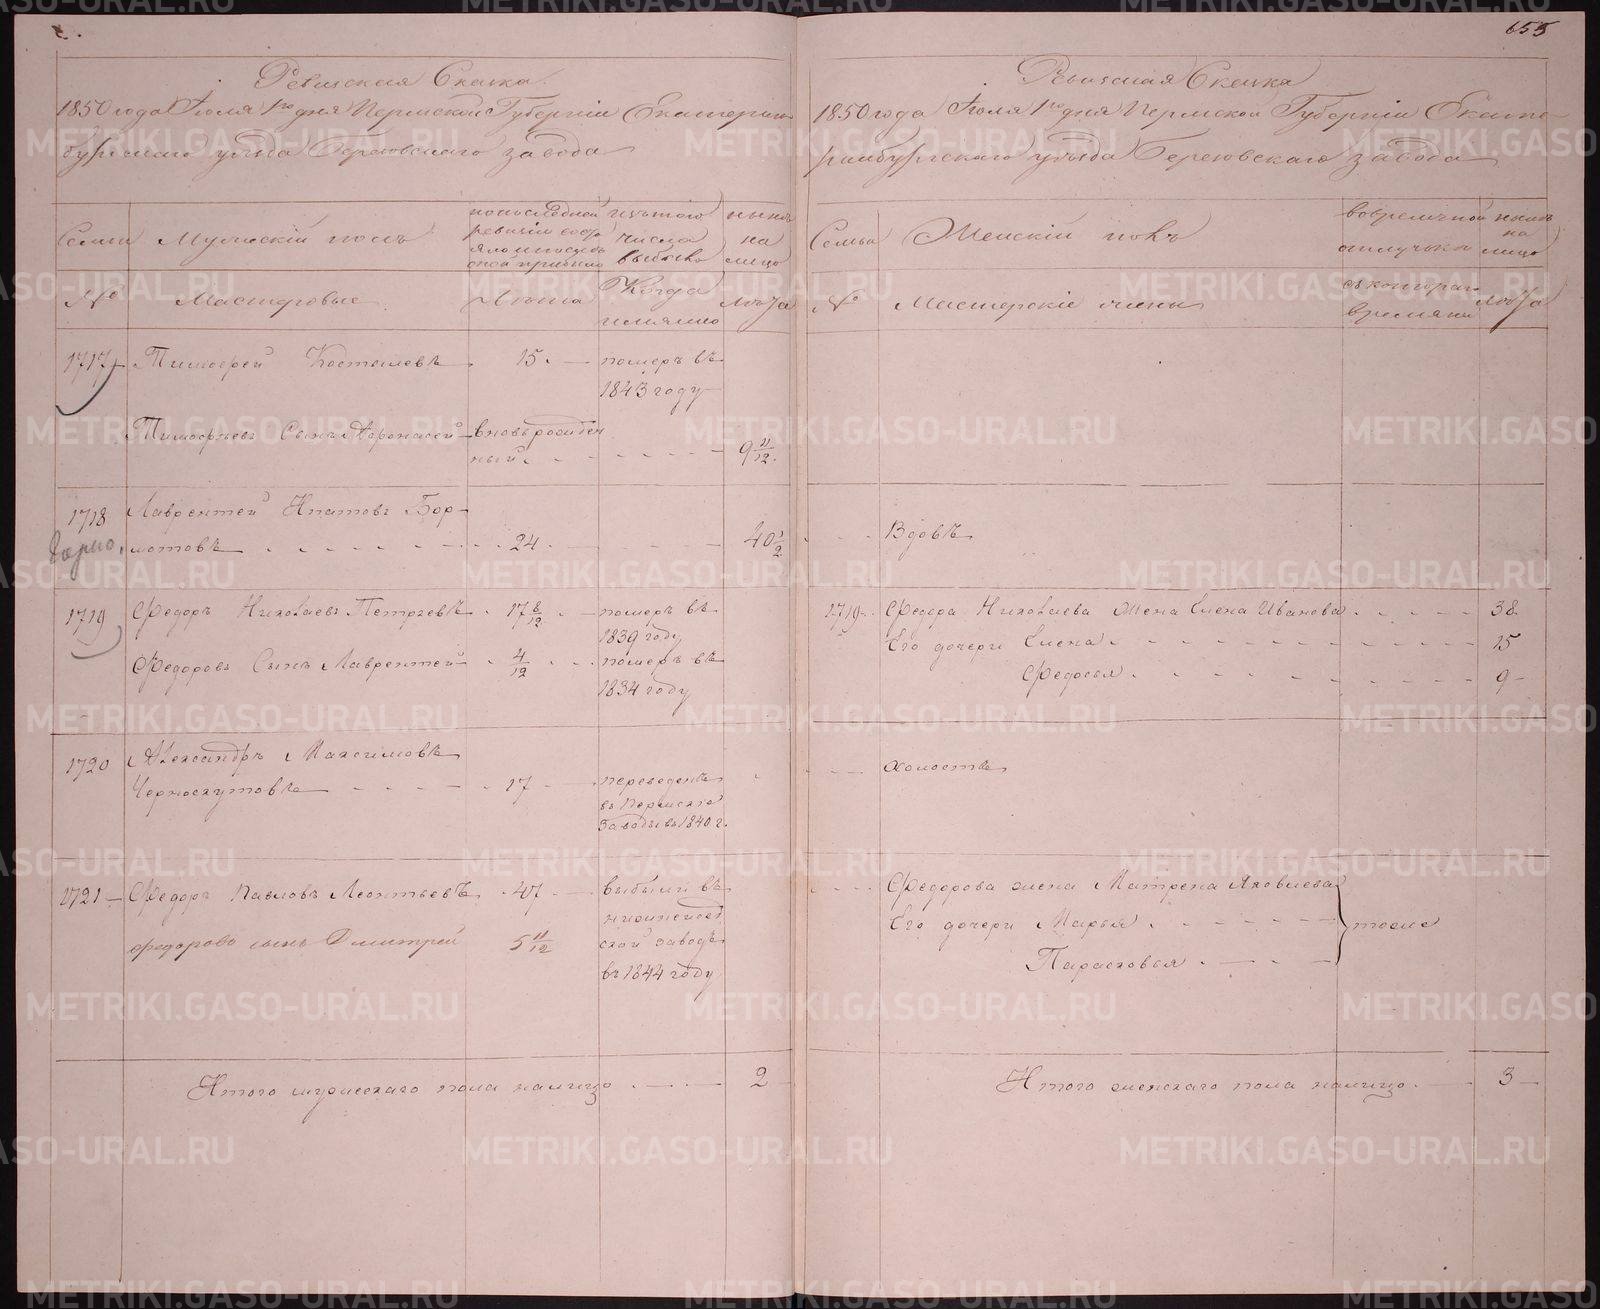 655
Ревизская Сказка
1850 года Іюля 1го дня Пермской Губерніи Екатерин-
бургскаго уѣзда Березовскаго завода
Семьи
Мужескій полъ
по последней
ревизіи состо
яло и после
оной прибыло
изъ того
числа
выбыло
нынѣ
на
лицо
№
Мастеровые
Лѣта
Когда
имянно
Лѣта
1717
Тимофей Костылевъ
15
померъ въ
1843 году
Тимофеевъ Сынъ Афонасей
вновь рожден
ный
9 11/12
1718
Лаврентей Ипатовъ Бор-
мотовъ
24
40 1/2
1719
Федоръ Николаевъ Петровъ
17 8/12
померъ въ
1839 году
Федоровъ Сынъ Лаврентей
4/12
померъ въ
1834 году
1720
Александръ Максимовъ
Черноскутовъ
17
переведенъ
въ Пермскіе
Заводы въ 1840 г.
1721
Федоръ Павловъ Леонтьевъ
47
выбыли въ
ской заводъ
въ 1844 году
федорова сынъ Дмитрей
5 11/12
Итого мужескаго пола налицо
2
Ревизская Сказка
1850 года Іюля 1го дня Пермской Губерніи Екате-
ринбургскаго уѣзда Березовскаго завода
Семьи
Женскій полъ
во временной
отлучкѣ
нынѣ
на
лицо
№
Мастерскіе жены
съ котораго
времяни
Лѣта
Вдовъ
1719
Федора Николаева жена Елена Иванова
38
Его дочери Елена
15
Федосья
9
холостъ
Федорова жена Матрена Яковлева
Его дочери Марья
тоже
Парасковья
Итого женскаго пола налицо
3
METRIKI.GASO-URAL.RU